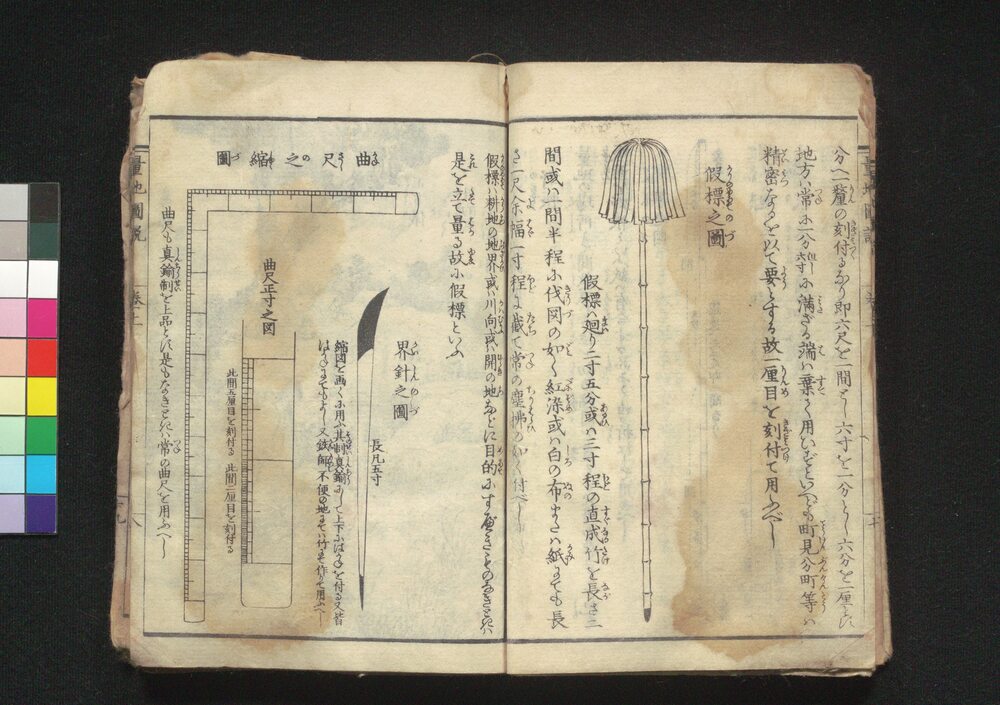 分へ一釐の刻付るなり即六尺を一間とし六寸を一分とし六分を一厘とし
地方ハ常に一分六寸に満ざる端ハ棄て用ひずといへども町見分町等ハ
精密なるを以て要とする故一厘目を刻付て用ふべし
假標之圖
假標ハ廻り二寸五分或ハ三寸程の直成竹を長さ二
間或ハ一間半程に伐図の如く紅染或ハ白の布またハ紙にても長
さ一尺余幅一寸程に截て常の塵拂の如く付べし
假標ハ耕地の地界或ハ川向或ハ開の地などに目的にすべきものなきときハ
是を立て量る故に假標といふ
界針之圖
長凡五寸
縮図を画くに用ふ其制真鍮にして上下にはりを付る又皆
曲尺之縮圖
曲尺正寸之図
此間五厘目を刻付る
此間一厘目を刻付る
曲尺も真鍮制を上品とす是もなきときハ常の曲尺を用ふべし
量地圖説